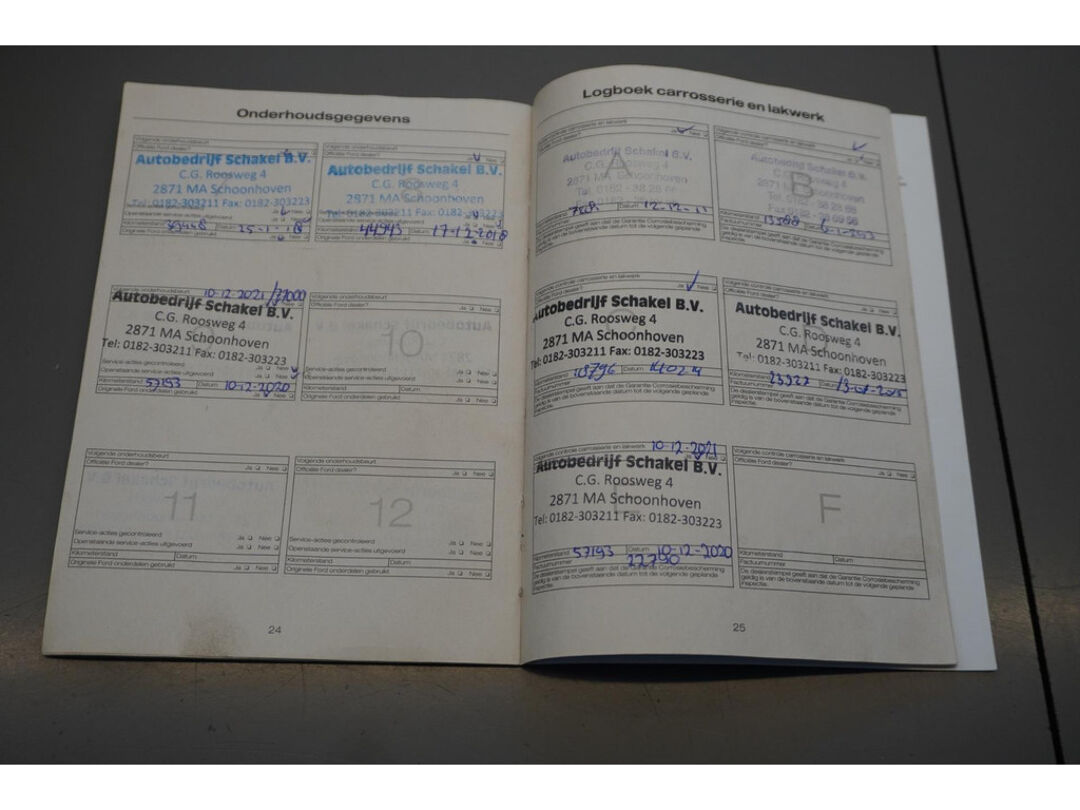 Onderhoudsgegevens
Volgende onderhoudsbeurt
Officiële Ford dealer?
Autobedrijf Schakel B.V.
C.G. Roosweg 4
2871 MA Schoonhoven
Tel: 0182-303211 Fax: 0182-303223
Ja Nee
Openstaande service-acties uitgevoerd
Datum 25-1-18
Originele Ford onderdelen gebruikt
Autobedrijf Schakel B.V.
C.G. Roosweg 4
2871 MA Schoonhoven
Tel: 0182-303211 Fax: 0182-303223
Kilometerstand 44943 Datum 17-12-2018
Originele Ford onderdelen gebruikt Ja Nee
Volgende onderhoudsbeurt 10-12-2021/77000
Autobedrijf Schakel B.V.
C.G. Roosweg 4
2871 MA Schoonhoven
Tel: 0182-303211 Fax: 0182-303223
Service-acties gecontroleerd Ja Nee
Openstaande service-acties uitgevoerd Ja Nee
Kilometerstand 57193 Datum 10-12-2020
Originele Ford onderdelen gebruikt Ja Nee
Volgende onderhoudsbeurt
Officiële Ford dealer? Ja Nee
10
Service-acties gecontroleerd Ja Nee
Openstaande service-acties uitgevoerd Ja Nee
Kilometerstand Datum
Originele Ford onderdelen gebruikt Ja Nee
Volgende onderhoudsbeurt
Officiële Ford dealer? Ja Nee
11
Service-acties gecontroleerd Ja Nee
Openstaande service-acties uitgevoerd Ja Nee
Kilometerstand Datum
Originele Ford onderdelen gebruikt Ja Nee
Volgende onderhoudsbeurt
Officiële Ford dealer? Ja Nee
12
Service-acties gecontroleerd Ja Nee
Openstaande service-acties uitgevoerd Ja Nee
Kilometerstand Datum
Originele Ford onderdelen gebruikt Ja Nee
24
Logboek carrosserie en lakwerk
Volgende controle carrosserie en lakwerk
Officiële Ford dealer? Ja Nee
A
Autobedrijf Schakel B.V.
C.G. Roosweg 4
2871 MA Schoonhoven
Datum
De dealerstempel geeft aan dat de Garantie Corrosiebescherming
geldig is van de bovenstaande datum tot de volgende geplande
inspectie.
Volgende controle carrosserie en lakwerk
Officiële Ford dealer? Ja Nee
B
Autobedrijf Schakel B.V.
C.G. Roosweg 4
2871 MA Schoonhoven
Kilometerstand 13588 Datum
De dealerstempel geeft aan dat de Garantie Corrosiebescherming
geldig is van de bovenstaande datum tot de volgende geplande
inspectie.
Volgende controle carrosserie en lakwerk
Officiële Ford dealer? Ja Nee
Autobedrijf Schakel B.V.
C.G. Roosweg 4
2871 MA Schoonhoven
Tel: 0182-303211 Fax: 0182-303223
Kilometerstand 18796 Datum
Factuurnummer
De dealerstempel geeft aan dat de Garantie Corrosiebescherming
geldig is van de bovenstaande datum tot de volgende geplande
inspectie.
Volgende controle carrosserie en lakwerk
Officiële Ford dealer? Ja Nee
Autobedrijf Schakel B.V.
C.G. Roosweg 4
2871 MA Schoonhoven
Tel: 0182-303211 Fax: 0182-303223
Kilometerstand Datum
Factuurnummer
De dealerstempel geeft aan dat de Garantie Corrosiebescherming
geldig is van de bovenstaande datum tot de volgende geplande
inspectie.
Volgende controle carrosserie en lakwerk 10-12-2021
Autobedrijf Schakel B.V.
C.G. Roosweg 4
2871 MA Schoonhoven
Tel: 0182-303211 Fax: 0182-303223
Kilometerstand 57193 Datum 10-12-2020
Factuurnummer 22790
De dealerstempel geeft aan dat de Garantie Corrosiebescherming
geldig is van de bovenstaande datum tot de volgende geplande
inspectie.
Volgende controle carrosserie en lakwerk
Officiële Ford dealer? Ja Nee
F
Kilometerstand Datum
Factuurnummer
De dealerstempel geeft aan dat de Garantie Corrosiebescherming
geldig is van de bovenstaande datum tot de volgende geplande
inspectie.
25